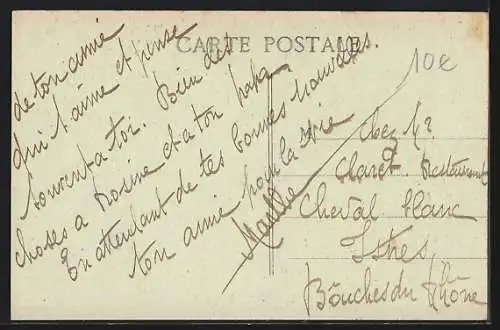 CARTE POSTALE
10€
de ton amie
qui t'aime et pense
souvent a toi. Bien des
choses a Rosine et a ton papa
En attendant de tes bonnes nouvelles.
ton amie pour la vie
Chez Mr
Claret Restaurant
Cheval blanc
Istres
Bôuches du Rhône